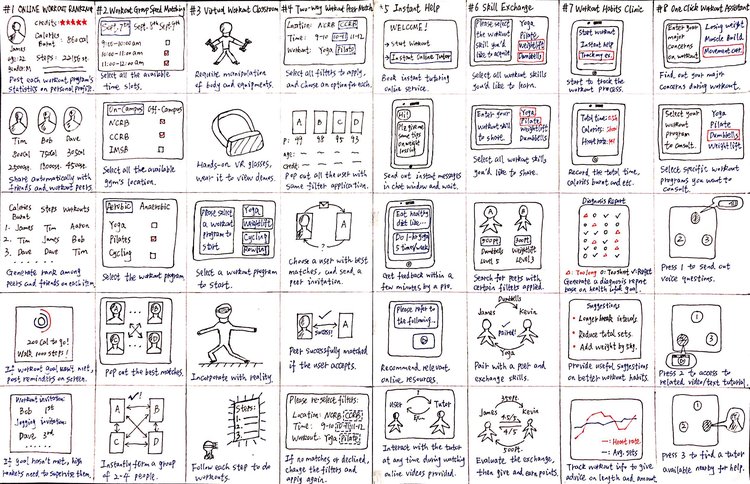 #1 ONLINE WORKOUT RANKING
credits: ★★★★★
Calories
Burnt : 860 cal
Steps : 2215 st
James
age: 22
gender: M
Post each workout program's
statistics on personal profile.
Tim Bob Dave
Share automatically with
friends and workout peers
Calories Burnt Steps Workouts
1. James Tim Aaron
2. Tim James Bob
3. Dave Dave Tim
Generate rank among
peers and friends on each item
200 Cal to go!
Walk 1000 steps!
If workout goal hasn't met,
post reminders on screen.
Workout invitation:
Bob 1st
Jogging invitation:
Dave 3rd
If goal hasn't met, high
rankers need to supervise them.
#2 Workout Group Speed Matching
Sept. 7th Sept. 8th
9:00-10:00 am
10:00-11:00 am
11:00-12:00 am
Select all the available
time slots.
On-Campus Off-Campus
NCRB
CCRB
IMSB
Select all the available
gym's location.
Aerobic Anaerobic
Yoga
Pilates
Cycling
Select the workout program
Pop out the best matches.
A B
C D
Instantly form a group
of 2-4 people.
#3 Virtual Workout Classroom
Require manipulation
of body and equipments.
Hands-on VR glasses,
wear it to view demos.
Please select
a workout
program to
start.
Yoga
Weightlift
Cycling
Rowing
Select a workout program
to start.
Incorporate with reality.
Steps:
1.
2.
3.
Follow each step to do
workouts.
#4 Two-way Workout Peer Match
Location: NCRB CCRB
Time: 9-10 10-11 11-12
Workout: Yoga Pilates
Select all filters to apply,
and choose an option for each.
A B C D
P: 99 98 95 93
age:
cred:
Pop out all the user with
same filter application.
A
?
Choose a user with best
matches, and send a
peer invitation.
A
Success!
Peer successfully matched
if the user accepts.
Please re-select filters:
Location: NCRB CCRB
Time: 9-10 10-11 11-12
Workout: Yoga Pilates
If no matches or declined,
change the filters and
apply again.
#5 Instant Help
WELCOME!
→ Start workout
→ Instant Online Tutor
Book instant tutoring
online service.
Hi!
Pls give me
some tips
on weight
lossing!
Send out instant messages
in chat window and wait.
Eat healthy
diet like...
Do 1-hr yoga
5 times/week
Get feedback within a
few minutes by a pro.
Please refer to
the following...
Recommend relevant
online resources.
User Tutor
Interact with the tutor
at any time during watching
online videos provided.
#6 Skill Exchange
Please select
the workout
skill you'd
like to acquire
Yoga
Pilates
Weightlift
Dumbbells
Select all workout skills
you'd like to learn.
Enter your
workout skill
to share.
Yoga
Pilate
Weightlift
Dumbbells
Select all workout skills
you'd like to share.
A B
500pt 500pt
Dumbbells Weightlift
Level 5 Level 3
Search for peers with
certain filters applied.
Dumbbells
James Kevin
paired!
Yoga
Pair with a peer and
exchange skills.
500pt.
James Kevin
4.5/5
4/5
500pt.
Evaluate the exchange,
then give and earn points.
#7 Workout Habits Clinic
Start workout
Instant help
Track my ex.
Start to track the
workout process.
Total time:
Calories:
Heart rate:
Record the total time,
calories burnt and etc.
Diagnosis Report
△: Too long ○: Too short ✓: Right
Generate a diagnosis report
base on health info & goal.
Suggestions
• Longer break intervals
• Reduce total sets.
• Add weight by 5kg.
Provide useful suggestions
on better workout habits.
—: Heart rate
—: Avg. sets
Track workout info to give
advice on length and amount.
#8 One Click Workout Assistant
Enter your
major
concerns
on workout
Losing weight
Muscle Build.
Movement corr.
Find out your major
concerns during workout.
Select your
workout
program
to consult.
Yoga
Pilate
Dumbbells
Weightlift
Select specific workout
programs you want to
consult.
1
2
3
Press 1 to send out
voice questions.
1
2
3
Press 2 to access to
related video/text tutorial.
1
2
3
help!
Press 3 to find a tutor
available nearby for help.